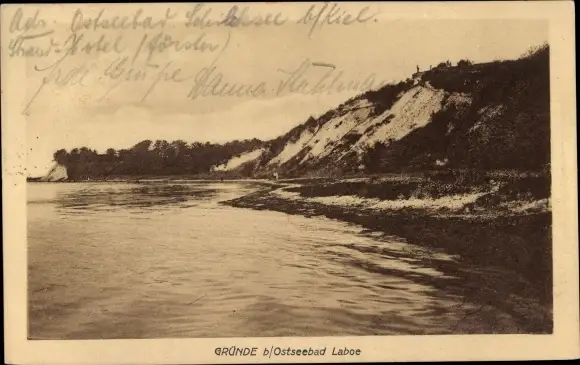 Adr. Ostseebad Schilksee b/Kiel.
Strand-Hotel (Förster)
Grüße Hanna Kuhlmann
GRÜNDE b/Ostseebad Laboe